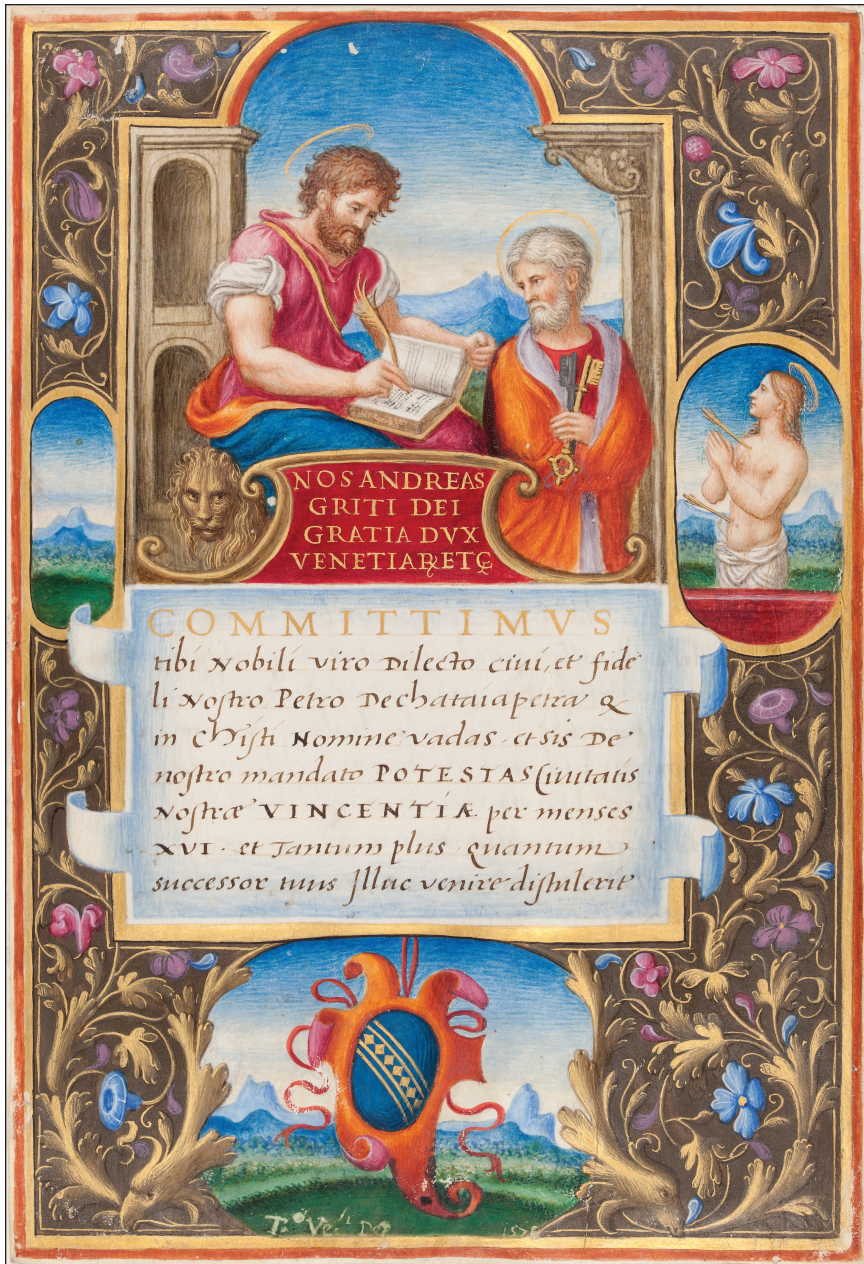 NOS ANDREAS
GRITI DEI
GRATIA DVX
VENETIARꝜ ETC̨
COMMITTIMVS
tibi Nobili viro Dilecto ciui, et fide
li Nostro Petro Dechataiapetra Q
in Christi Nomine vadas et sis De
nostro mandato POTESTAS Ciuitatis
Nostræ VINCENTIÆ per menses
XVI · et Tantum plus quantum
successor tuus Illuc venire distulerit